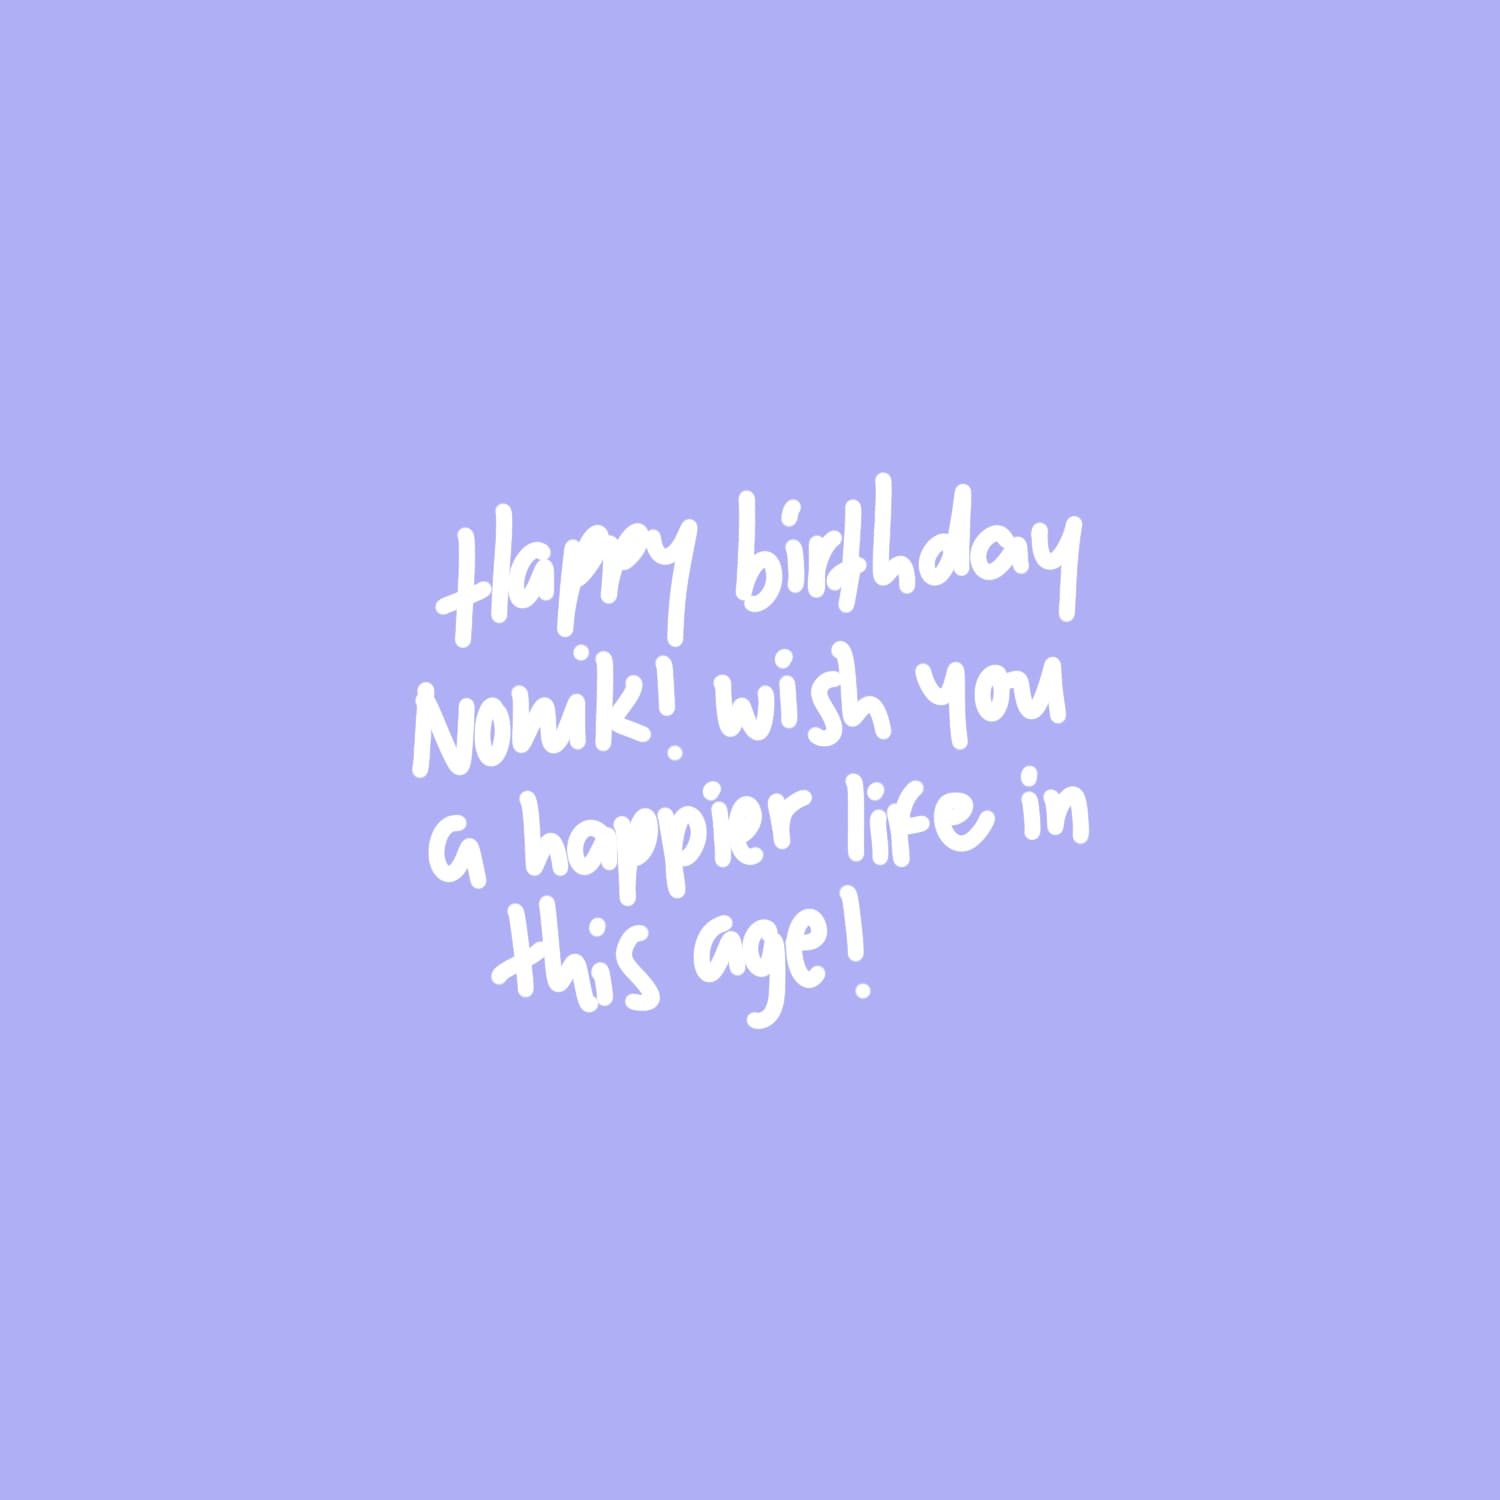 Happy birthday
Nonik! wish you
a happier life in
this age!